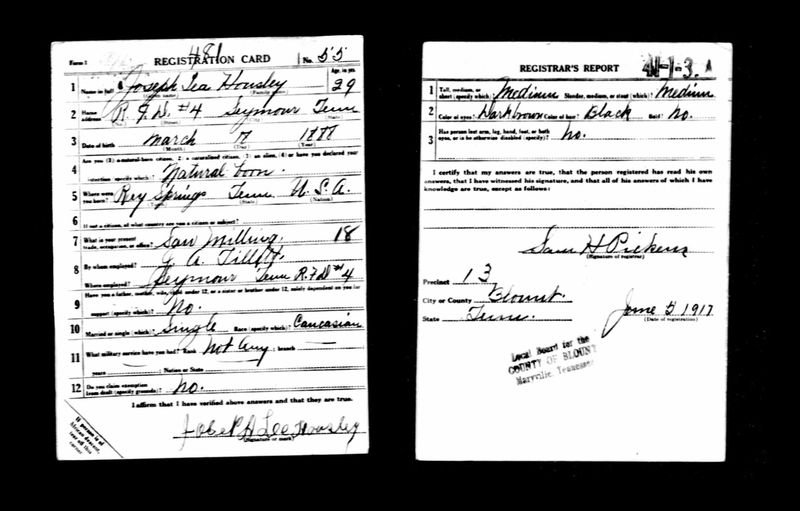 Form 1
481
REGISTRATION CARD No. 55
1 Name in full Joseph Lea Housley Age, in yrs. 29
2 Home address R. F. D. #4 Seymour Tenn
3 Date of birth March 7 1888
(Month) (Day) (Year)
Are you (1) a natural-born citizen, (2) a naturalized citizen, (3) an alien, (4) or have you declared your
4 intention (specify which)? Natural born.
5 Where were you born? Rey Springs Tenn U. S. A.
(Town) (State) (Nation)
6 If not a citizen, of what country are you a citizen or subject?
7 What is your present trade, occupation, or office? Saw Milling. 18
8 By whom employed? J. A. Tillery.
Where employed? Seymour Tenn R. F. D #4
9 Have you a father, mother, wife, child under 12, or a sister or brother under 12, solely dependent on you for
support (specify which)? No.
10 Married or single (which)? Single Race (specify which)? Caucasian
11 What military service have you had? Rank Not Any; branch
years ; Nation or State
12 Do you claim exemption from draft (specify grounds)? No.
I affirm that I have verified above answers and that they are true.
Joseph Lee Housley
(Signature or mark)
If person is of
African descent,
tear off this
corner
REGISTRAR'S REPORT 41-1-3. A
1 Tall, medium, or short (specify which)? Medium Slender, medium, or stout (which)? Medium
2 Color of eyes? Dark brown Color of hair? Black Bald? No.
3 Has person lost arm, leg, hand, foot, or both
eyes, or is he otherwise disabled (specify)? No.
I certify that my answers are true, that the person registered has read his own
answers, that I have witnessed his signature, and that all of his answers of which I have
knowledge are true, except as follows:
Sam H Pickens
(Signature of registrar)
Precinct 13
City or County Blount.
State Tenn. June 5 1917
(Date of registration)
Local Board for the
COUNTY OF BLOUNT
Maryville, Tennessee